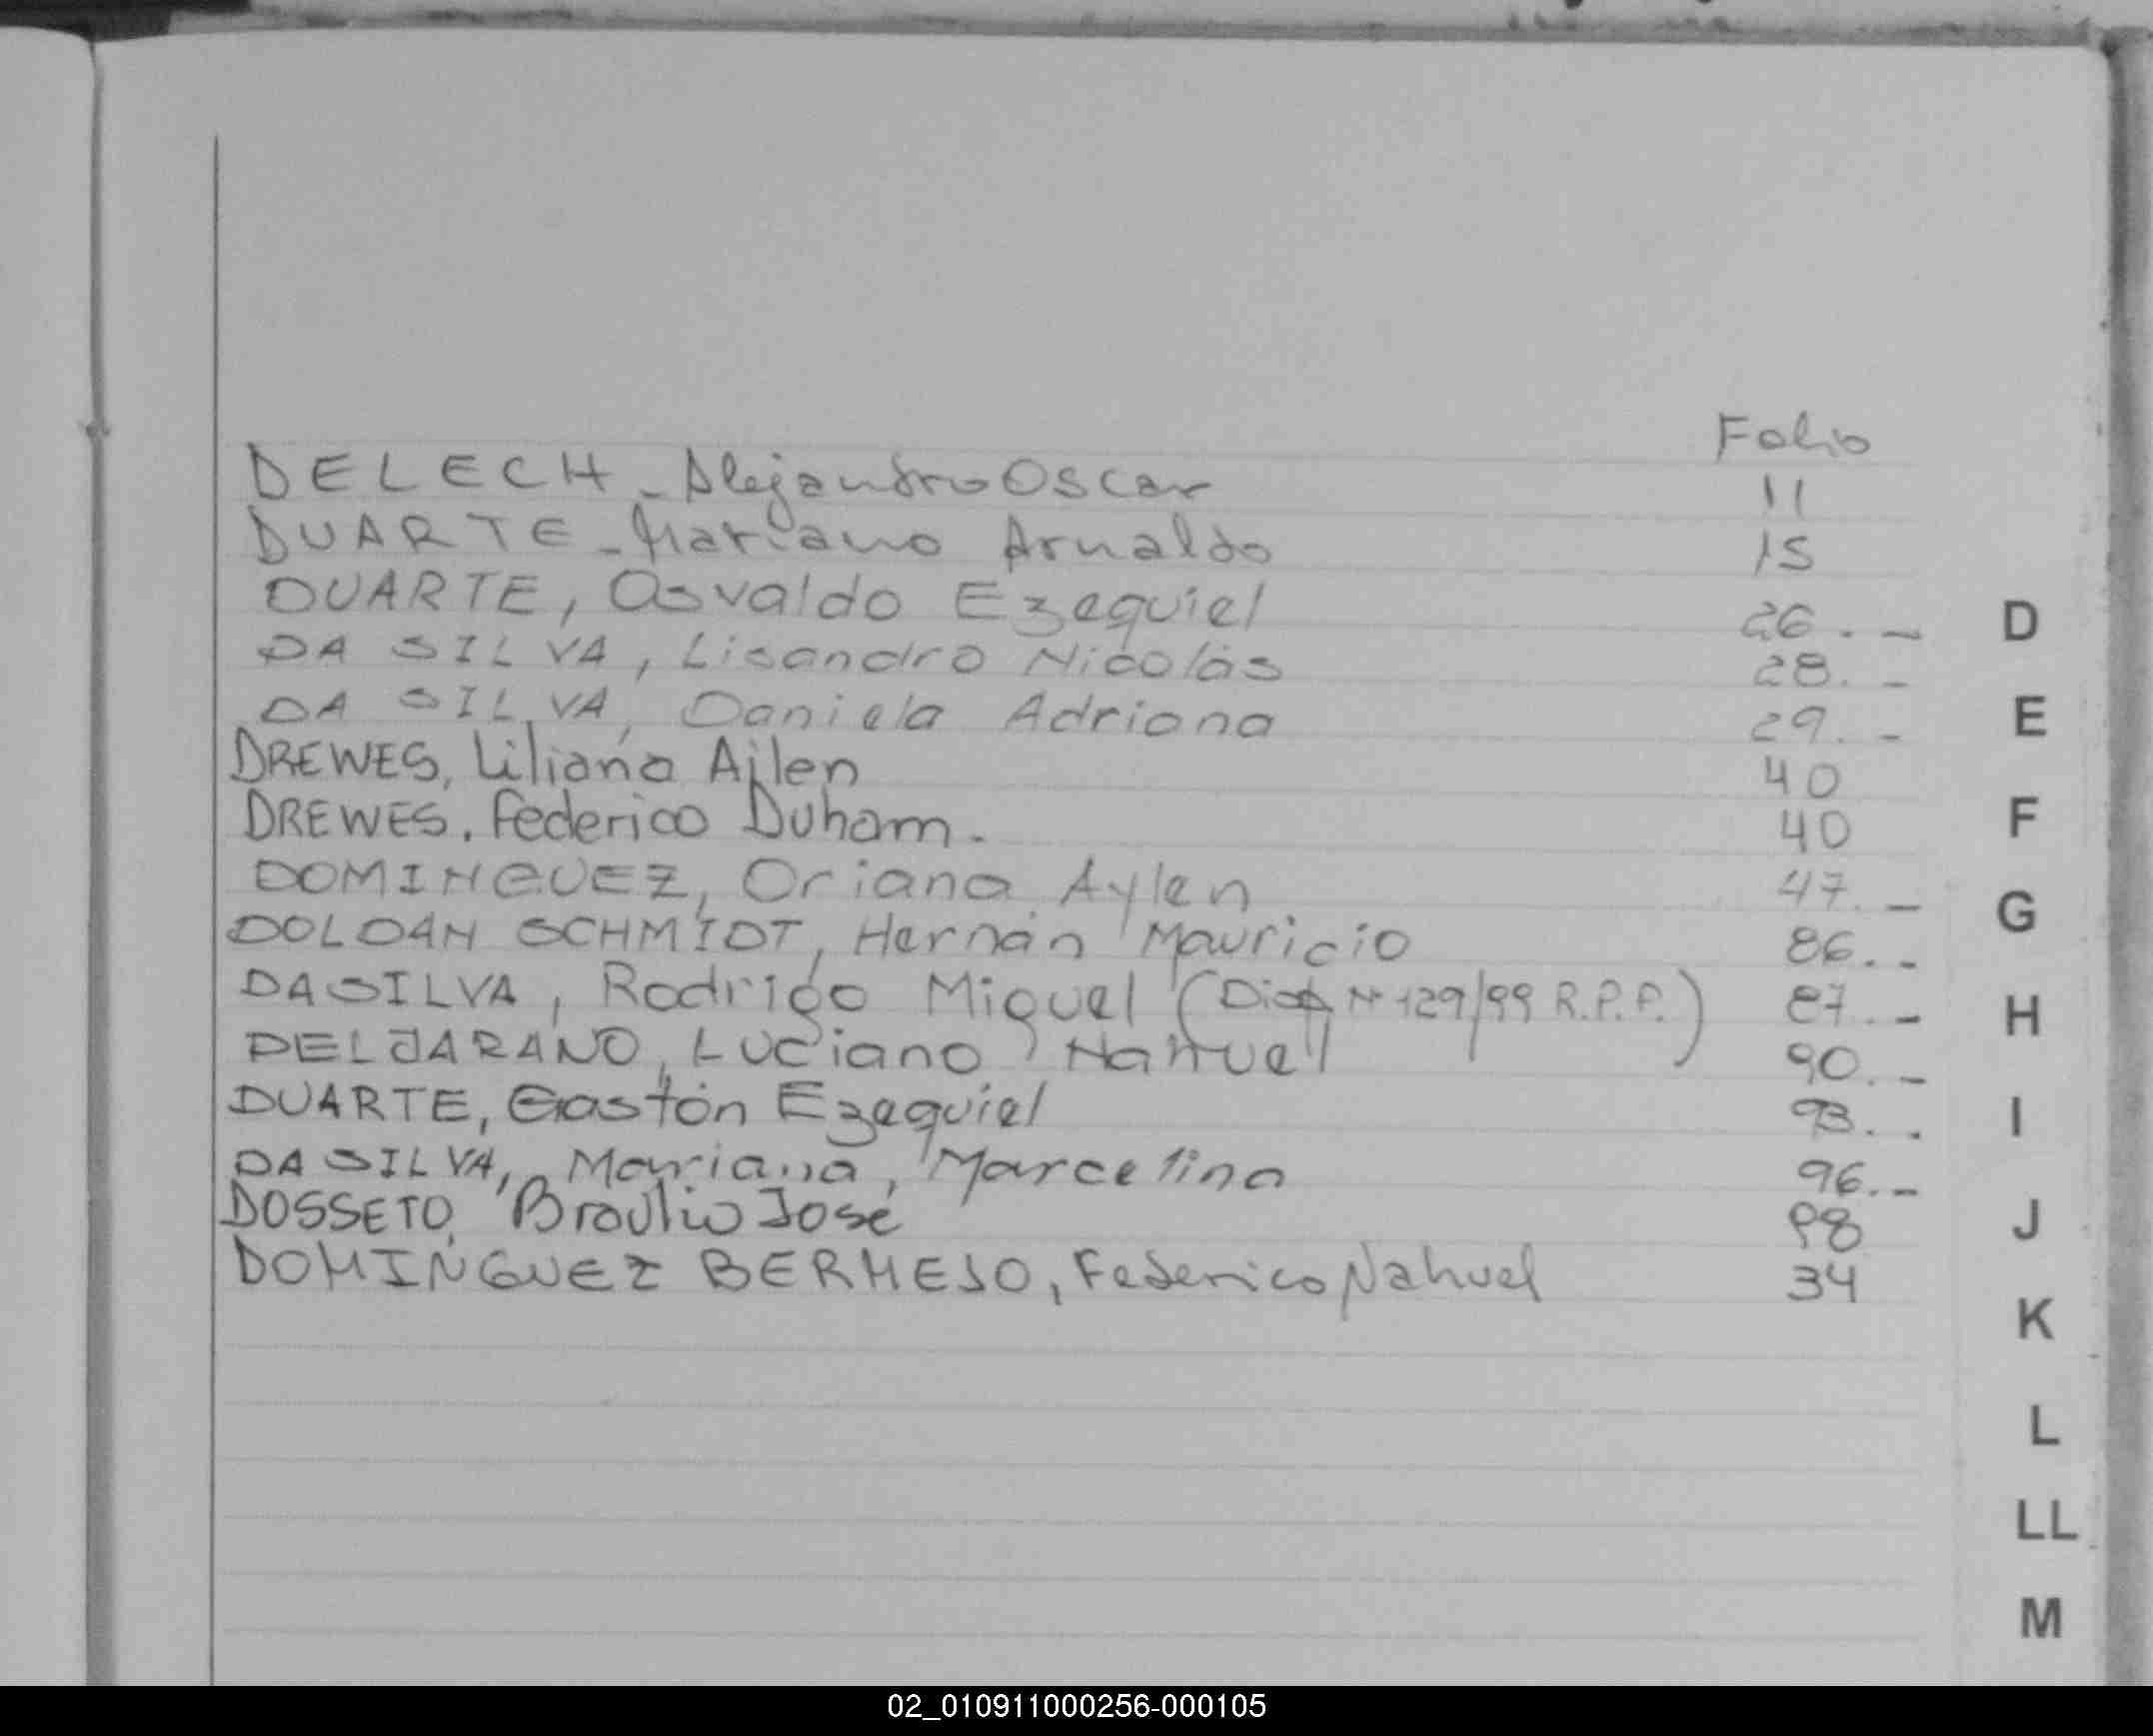 Folio
DELECH - Alejandro Oscar 11
DUARTE - Mariano Arnaldo 15
DUARTE, Osvaldo Ezequiel 26.-
DA SILVA, Lisandro Nicolás 28.-
DA SILVA, Daniela Adriana 29.-
DREWES, Liliana Ailen 40
DREWES, Federico Duham. 40
DOMINGUEZ, Oriana Aylen 47.-
DOLDÁN SCHMIDT, Hernán Mauricio 86.-
DA SILVA, Rodrigo Miguel (Disp Nº 129/99 R.P.P.) 87.-
DELJARANO, Luciano Nahuel 90.-
DUARTE, Gastón Ezequiel 93..
DA SILVA, Mariana, Marcelina 96.-
DOSSETO, Braulio José 98
DOMINGUEZ BERMEJO, Federico Nahuel 34
D
E
F
G
H
I
J
K
L
LL
M
02_010911000256-000105